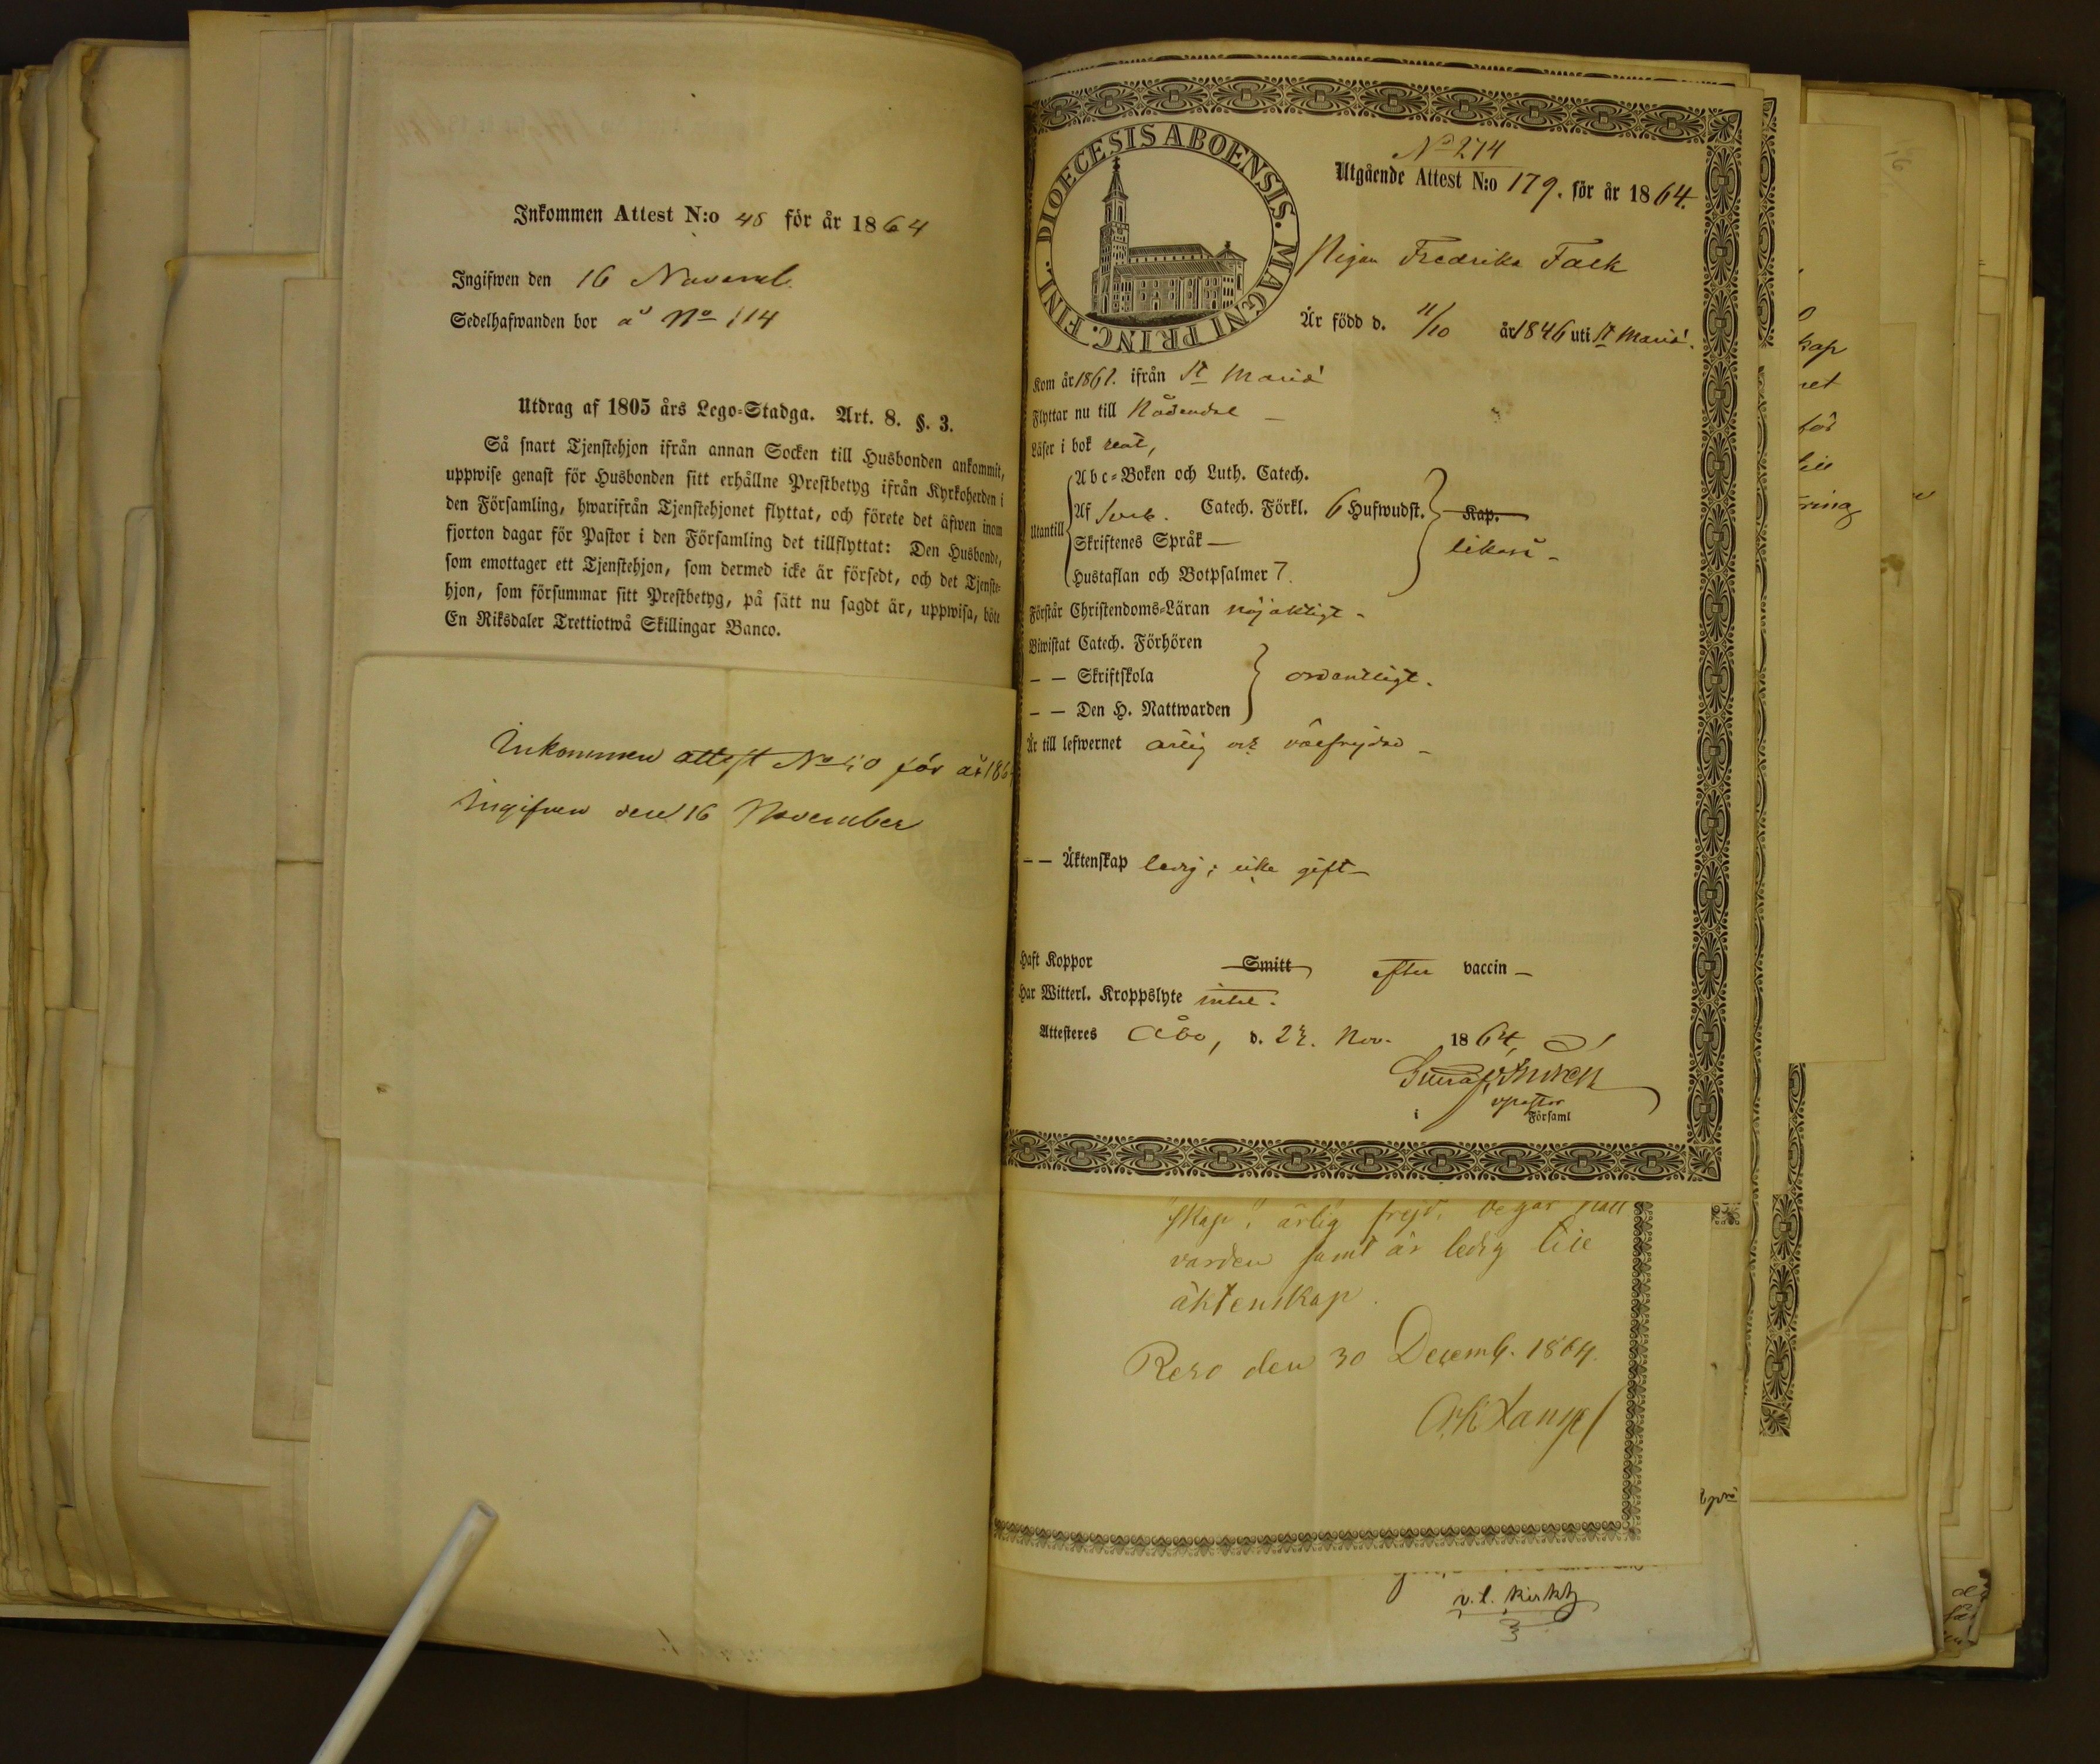 Inkommen Attest N:o 48 för år 1864
Ingifwen den 16 Novemb.
Sedelhafwanden bor å No 114
Utdrag af 1805 års Lego-Stadga. Art. 8. §. 3.
Så snart Tjenstehjon ifrån annan Socken till Husbonden ankommit,
uppwise genast för Husbonden sitt erhållne Prestbetyg ifrån Kyrkoherden i
den Församling, hwarifrån Tjenstehjonet flyttat, och förete det äfwen inom
fjorton dagar för Pastor i den Församling det tillflyttat: Den Husbonde,
som emottager ett Tjenstehjon, som dermed icke är försedt, och det Tjenste-
hjon, som försummar sitt Prestbetyg, på sätt nu sagdt är, uppwisa, böte
En Riksdaler Trettiotwå Skillingar Banco.
Inkommen attest No 50 för år 186
Ingifven den 16 November
DIOECESIS ABOENSIS. MAGNI PRINC. FINL.
No 214
Utgående Attest N:o 179. för år 1864.
Pigan Fredrika Falk
Är född d. 11/10 år 1846 uti St Mariæ.
Kom år 1861. ifrån St Mariæ
Flyttar nu till Nådendal
Läser i bok rent,
Abc-Boken och Luth. Catech.
Utantill Af Sveb. Catech. Förkl. 6 Hufwudst. Kap.
Skriftenes Språk — likaså
Hustaflan och Botpsalmer 7.
Förstår Christendoms-Läran nöjaktigt
Biwistat Catech. Förhören
— — Skriftskola ordentligt.
— — Den H. Nattwarden
Är till lefwernet ärlig och välfrejdad
— — Äktenskap ledig; icke gift
Haft Koppor Smitt efter vaccin
Har Witterl. Kroppslyte intet.
Attesteres Åbo, d. 22. Nov. 1864,
v pastor
i Församl
skap, ärlig frejd, begår natt
varden samt är ledig till
äktenskap.
Reso den 30 Decemb. 1864.
v. t. kirkh